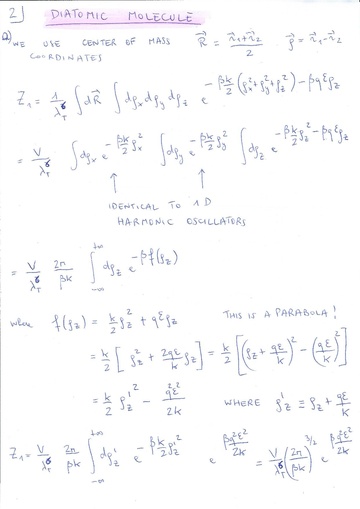 2) DIATOMIC MOLECULE
a) WE USE CENTER OF MASS R⃗ = (r⃗₁+r⃗₂)/2 ρ⃗ = r⃗₁-r⃗₂
COORDINATES
Z₁ = 1/λ_T⁶ ∫dR⃗ ∫dρₓ dρ_y dρ_z e^(-βk/2 (ρₓ²+ρ_y²+ρ_z²) - βqℰρ_z)
= V/λ_T⁶ ∫dρₓ e^(-βk/2 ρₓ²) ∫dρ_y e^(-βk/2 ρ_y²) ∫dρ_z e^(-βk/2 ρ_z² - βqℰρ_z)
↑ ↑
IDENTICAL TO 1D
HARMONIC OSCILLATORS
= V/λ_T⁶ 2π/βk ∫_{-∞}^{+∞} dρ_z e^(-βf(ρ_z))
where f(ρ_z) = k/2 ρ_z² + qℰρ_z THIS IS A PARABOLA!
= k/2 [ρ_z² + 2qℰ/k ρ_z] = k/2 [(ρ_z + qℰ/k)² - (qℰ/k)²]
= k/2 ρ'_z² - q²ℰ²/2k WHERE ρ'_z ≡ ρ_z + qℰ/k
Z₁ = V/λ_T⁶ 2π/βk ∫_{-∞}^{+∞} dρ'_z e^(-βk/2 ρ'_z²) e^(βq²ℰ²/2k) = V/λ_T⁶ (2π/βk)^(3/2) e^(βq²ℰ²/2k)